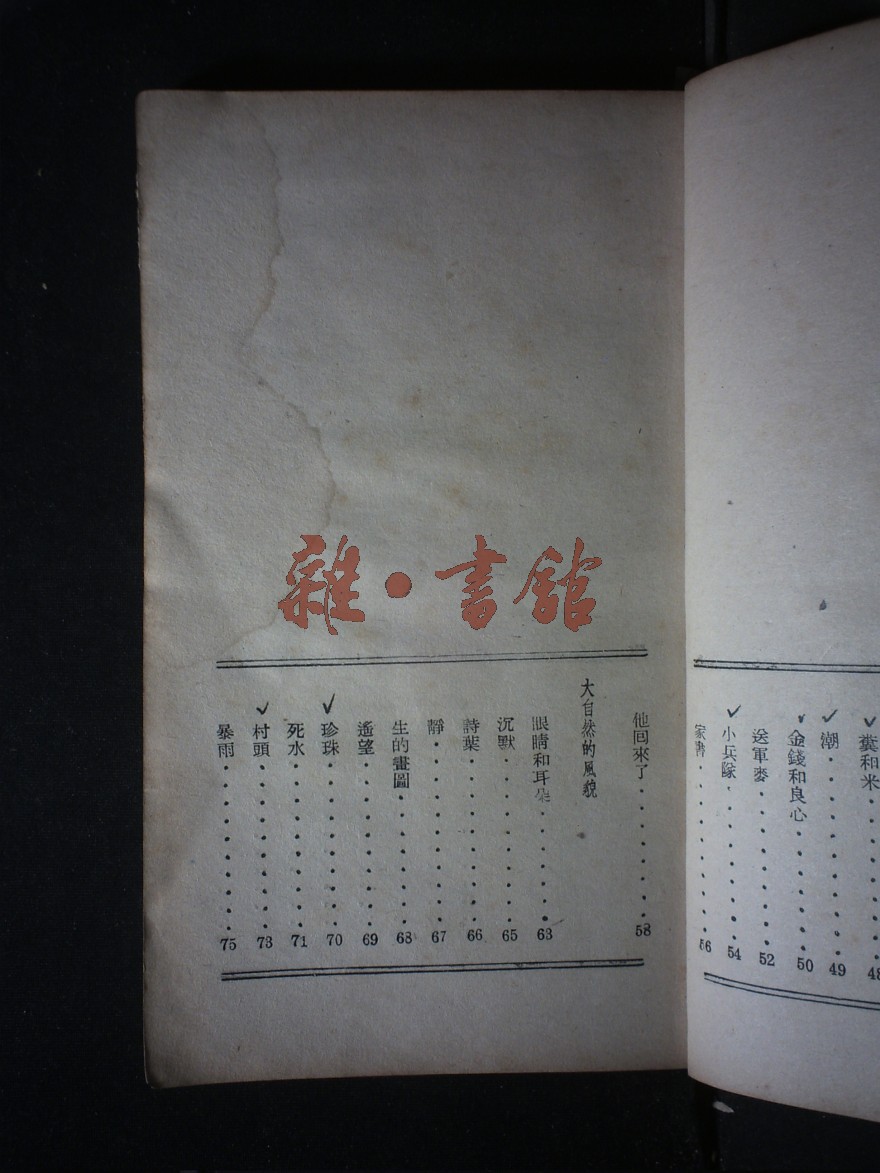 雜·書舘
糞和米 48
潮 49
金錢和良心 50
送軍麥 52
小兵隊 54
家書 56
他回來了 58
大自然的風貌
眼睛和耳朵 63
沉默 65
詩葉 66
靜 67
生的畫圖 68
遙望 69
珍珠 70
死水 71
村頭 73
暴雨 75